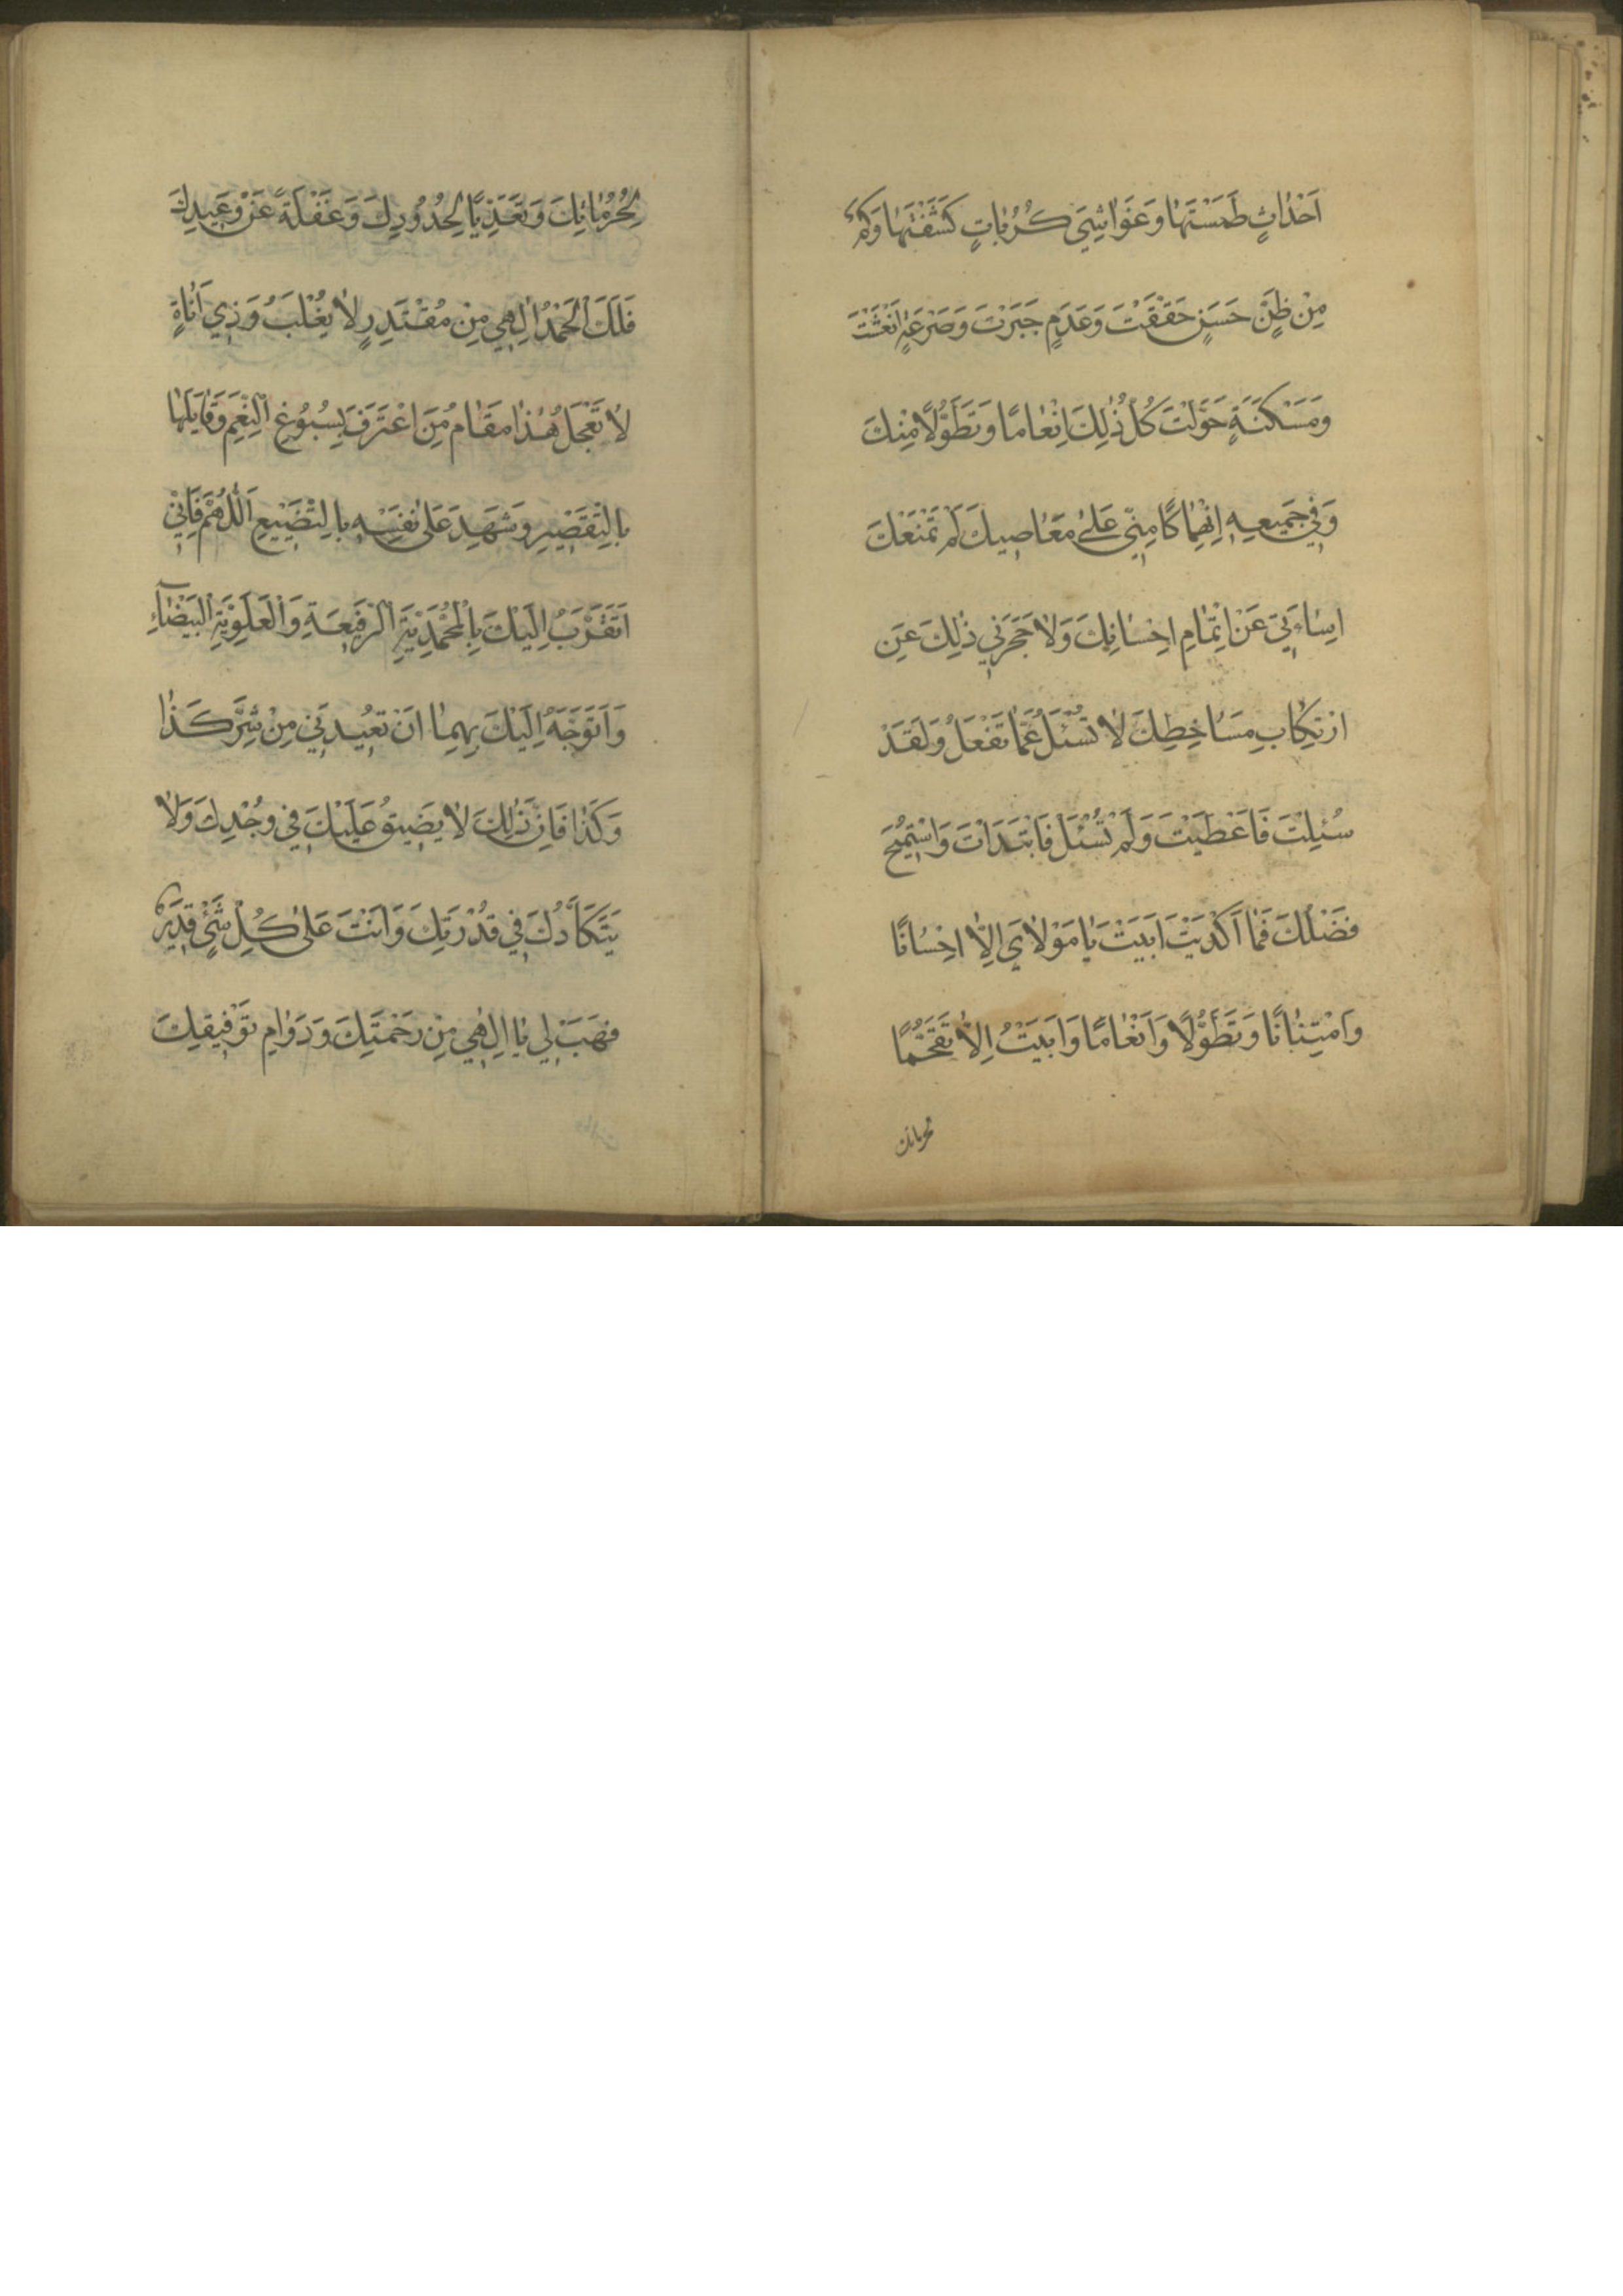 اَحْدٰاثٍ طَمَسْتَهٰا وَغَوٰاشِيَ كُرُبٰاتٍ كَشَفْتَهٰا وَكَمْ
مِنْ ظَنٍّ حَسَنٍ حَقَّقْتَ وَعَدَمٍ جَبَرْتَ وَصَرْعَةٍ اَنْعَشْتَ
وَمَسْكَنَةٍ حَوَّلْتَ كُلُّ ذٰلِكَ اِنْعٰامًا وَتَطَوُّلًا مِنْكَ
وَفِي جَمِيعِهِ اِنْهِمٰاكًا مِنّي عَلىٰ مَعٰاصِيكَ لَمْ تَمْنَعْكَ
اِسٰاءَتِي عَنْ اِتْمٰامِ اِحْسٰانِكَ وَلاٰ حَجَرَنِي ذٰلِكَ عَنِ
ارْتِكٰابِ مَسٰاخِطِكَ لاٰ تُسْئَلُ عَمّٰا تَفْعَلُ وَلَقَدْ
سُئِلْتَ فَاَعْطَيْتَ وَلَمْ تُسْئَلْ فَابْتَدَاْتَ وَاسْتُمِيحَ
فَضْلُكَ فَمٰا اَكْدَيْتَ اَبَيْتَ يٰا مَوْلاٰيَ اِلاّٰ اِحْسٰانًا
وَامْتِنٰانًا وَتَطَوُّلًا وَاَنْعٰامًا وَاَبَيْتُ اِلاّٰ تَقَحُّمًا
لحرماتك
لِحُرُمٰاتِكَ وَتَعَدِّيًا لِحُدُودِكَ وَغَفْلَةً عَنْ وَعِيدِكَ
فَلَكَ الْحَمْدُ اِلٰهِي مِنْ مُقْتَدِرٍ لاٰ يُغْلَبُ وَذِي اَنٰاةٍ
لاٰ تَعْجَلُ هٰذٰا مَقٰامُ مَنِ اعْتَرَفَ بِسُبُوغِ النِّعَمِ وَقٰابَلَهٰا
بِالتَّقْصِيرِ وَشَهِدَ عَلىٰ نَفْسِهِ بِالتَّضْيِيعِ اَللّٰهُمَّ فَاِنّي
اَتَقَرَّبُ اِلَيْكَ بِالْمُحَمَّدِيَّةِ الرَّفِيعَةِ وَالْعَلَوِيَّةِ الْبَيْضٰآءِ
وَاَتَوَجَّهُ اِلَيْكَ بِهِمٰا اَنْ تُعِيذَنِي مِنْ شَرِّ كَذٰا
وَكَذٰا فَاِنَّ ذٰلِكَ لاٰ يَضِيقُ عَلَيْكَ فِي وُجْدِكَ وَلاٰ
يَتَكَأَّدُكَ فِي قُدْرَتِكَ وَاَنْتَ عَلىٰ كُلِّ شَيْءٍ قَدِيرٌ
فَهَبْ لِي يٰا اِلٰهِي مِنْ رَحْمَتِكَ وَدَوٰامِ تَوْفِيقِكَ